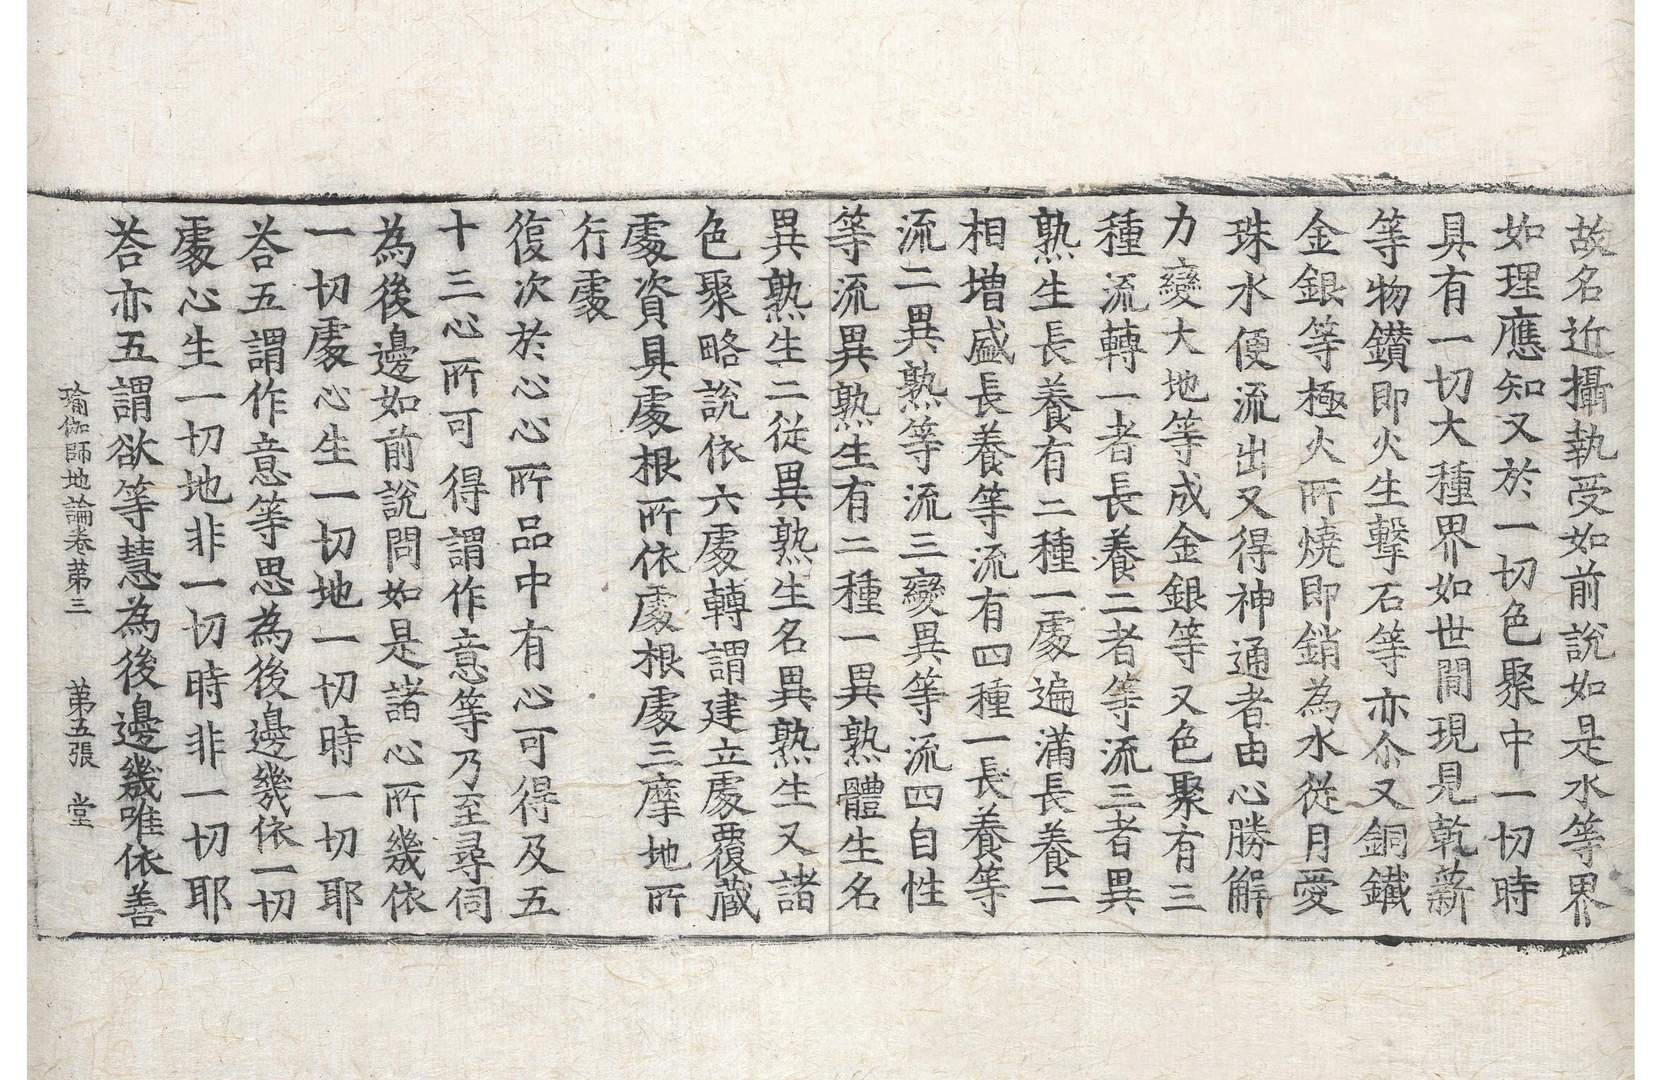 故名近攝執受如前說如是水等界
如理應知又於一切色聚中一切時
具有一切大種界如世間現見乾薪
等物鑚即火生擊石等亦尒又銅鐵
金銀等極火所燒即銷為水從月愛
珠水便流出又得神通者由心勝解
力變大地等成金銀等又色聚有三
種流轉一者長養二者等流三者異
熟生長養有二種一處遍滿長養二
相增盛長養等流有四種一長養等
流二異熟等流三變異等流四自性
等流異熟生有二種一異熟體生名
異熟生二從異熟生名異熟生又諸
色聚略說依六處轉謂建立處覆藏
處資具處根所依處根處三摩地所
行處
復次於心心所品中有心可得及五
十三心所可得謂作意等乃至尋伺
為後邊如前說問如是諸心所幾依
一切處心生一切地一切時一切耶
荅五謂作意等思為後邊幾依一切
處心生一切地非一切時非一切耶
荅亦五謂欲等慧為後邊幾唯依善
瑜伽師地論卷苐三 苐五張 堂